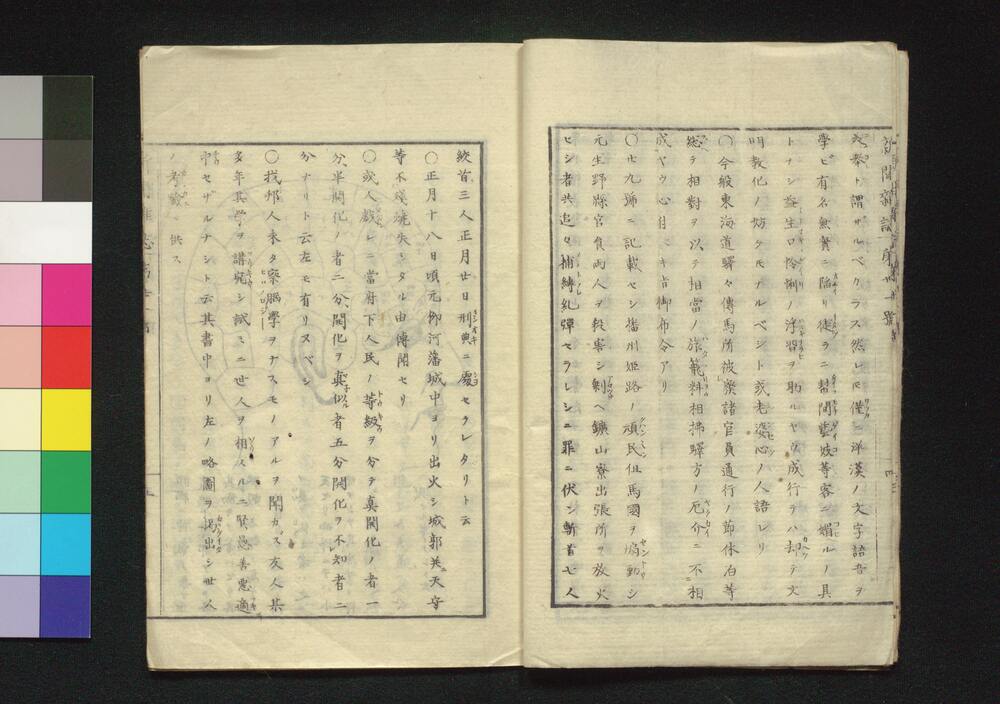 新聞雑誌
美挙ト謂サルベクラス然レ𪜈僅ニ洋漢ノ文字語音ヲ
学ビ有名無実ニ陥リ徒ラニ幇間芸妓等客ニ媚ルノ具
トナシ益生口怜悧ノ浮習ヲ助ルヤウ成行テハ却テ文
明教化ノ妨ケモナルベシト或老婆心ノ人語レリ
〇今般東海道駅々伝馬所被廃諸官員通行ノ節休泊等
総テ相対ヲ以テ相当ノ旅籠料相払駅方ノ厄介ニ不相
成ヤウ心得ベキ旨御布令アリ
〇廿九号ニ記載セシ播州姫路ノ頑民但馬国ヲ煽動シ
元生野県官員両人ヲ殺害シ剰ヘ鉱山寮出張所ヲ放火
セシ者共追々捕縛糺弾セラレシニ罪ニ伏シ斬首七人
絞首三人正月廿日刑典ニ処セラレタリト云
〇正月十八日頃元柳河藩城中ヨリ出火シ城郭共天守
等不残焼失シタル由伝聞セリ
〇或人戯レニ当府下人民ノ等級ヲ分テ真開化ノ者一
分、半開化ノ者二分、開化ヲ真似者五分開化ヲ不知者二
分ナリト云左モ有リヌベシ
〇我邦人未タ察脳学ヲナスモノアルヲ聞カズ友人某
多年其学ヲ講究シ試ミニ世人ヲ相スルニ賢愚善悪適
中セザルナシト云其書中ヨリ左ノ略図ヲ掲出シ世人
ノ考覈ニ供ス